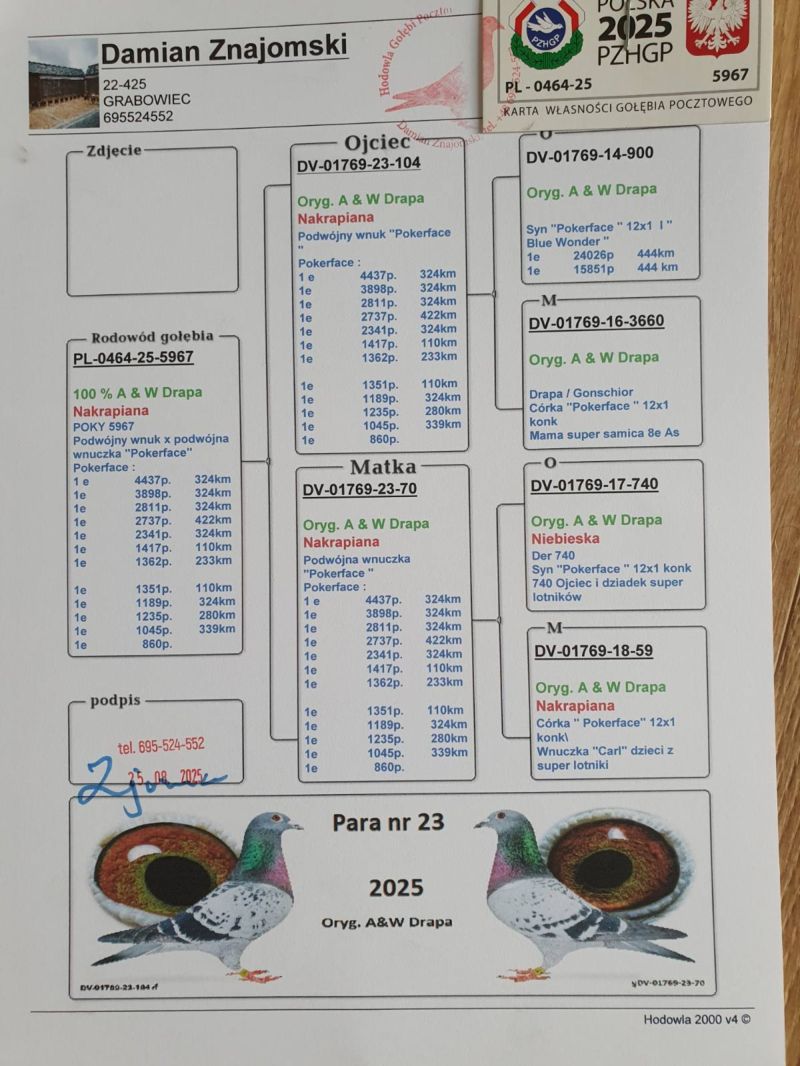 Damian Znajomski
22-425
GRABOWIEC
695524552
Hodowla Gołębi Poczto
Damian Znajomski tel.
POLSKA
2025
PZHGP
PZHGP
PL - 0464-25
5967
KARTA WŁASNOŚCI GOŁĘBIA POCZTOWEGO
Zdjęcie
Rodowód gołębia
PL-0464-25-5967
100 % A & W Drapa
Nakrapiana
POKY 5967
Podwójny wnuk x podwójna
wnuczka "Pokerface"
Pokerface :
1 e 4437p. 324km
1e 3898p. 324km
1e 2811p. 324km
1e 2737p. 422km
1e 2341p. 324km
1e 1417p. 110km
1e 1362p. 233km
1e 1351p. 110km
1e 1189p. 324km
1e 1235p. 280km
1e 1045p. 339km
1e 860p.
podpis
tel. 695-524-552
25. 08. 2025
Ojciec
DV-01769-23-104
Oryg. A & W Drapa
Nakrapiana
Podwójny wnuk "Pokerface
"
Pokerface :
1 e 4437p. 324km
1e 3898p. 324km
1e 2811p. 324km
1e 2737p. 422km
1e 2341p. 324km
1e 1417p. 110km
1e 1362p. 233km
1e 1351p. 110km
1e 1189p. 324km
1e 1235p. 280km
1e 1045p. 339km
1e 860p.
Matka
DV-01769-23-70
Oryg. A & W Drapa
Nakrapiana
Podwójna wnuczka
"Pokerface "
Pokerface :
1 e 4437p. 324km
1e 3898p. 324km
1e 2811p. 324km
1e 2737p. 422km
1e 2341p. 324km
1e 1417p. 110km
1e 1362p. 233km
1e 1351p. 110km
1e 1189p. 324km
1e 1235p. 280km
1e 1045p. 339km
1e 860p.
O
DV-01769-14-900
Oryg. A & W Drapa
Syn "Pokerface " 12x1 I "
Blue Wonder "
1e 24026p 444km
1e 15851p 444 km
M
DV-01769-16-3660
Oryg. A & W Drapa
Drapa / Gonschior
Córka "Pokerface " 12x1
konk
Mama super samica 8e As
O
DV-01769-17-740
Oryg. A & W Drapa
Niebieska
Der 740
Syn "Pokerface " 12x1 konk
740 Ojciec i dziadek super
lotników
M
DV-01769-18-59
Oryg. A & W Drapa
Nakrapiana
Córka " Pokerface" 12x1
konk\
Wnuczka "Carl" dzieci z
super lotniki
Para nr 23
2025
Oryg. A&W Drapa
DV-01769-23-104
DV-01769-23-70
Hodowla 2000 v4 ©